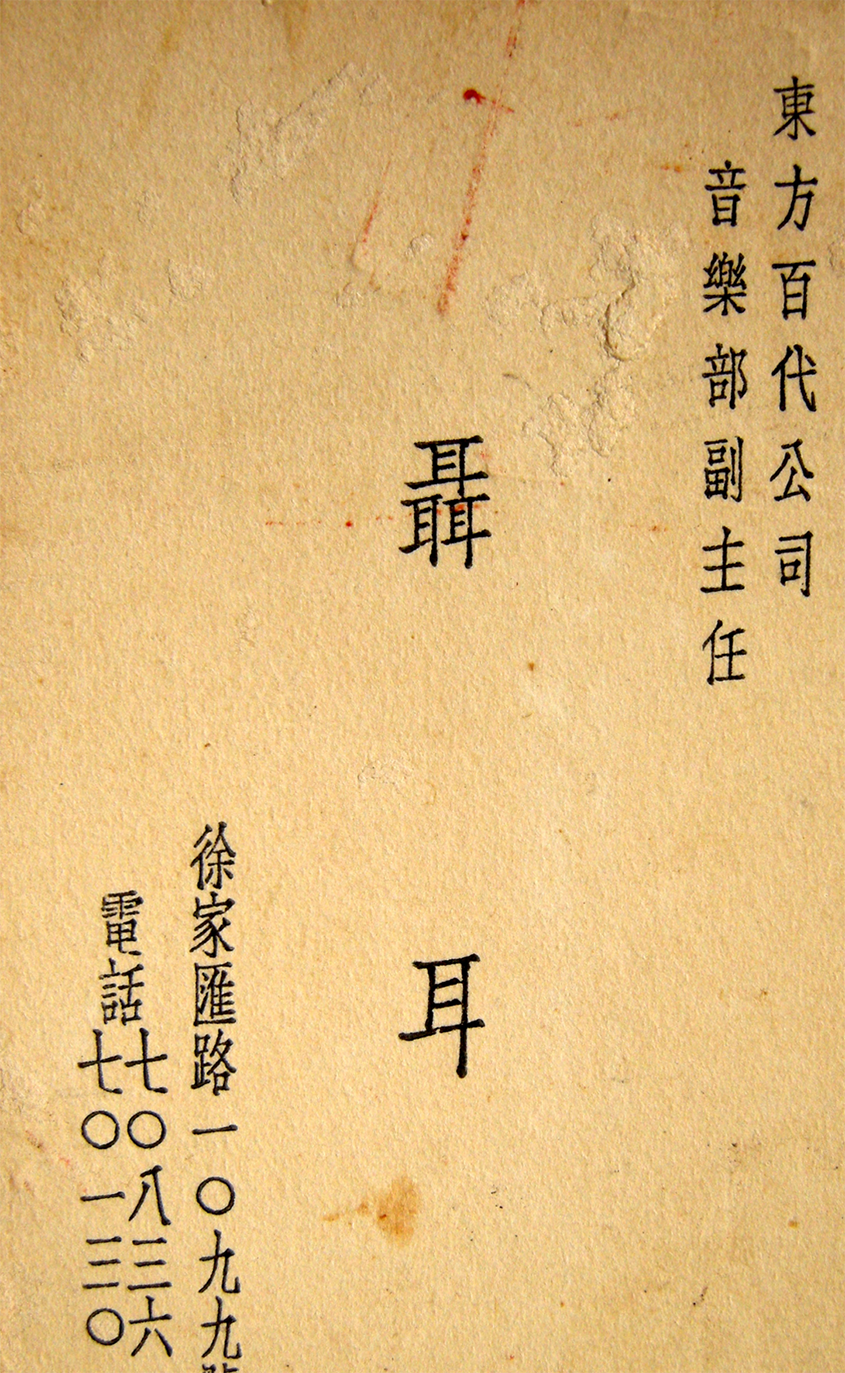 東方百代公司
音樂部副主任
聶耳
徐家匯路一〇九九號
電話
七〇八三六
七〇一三〇